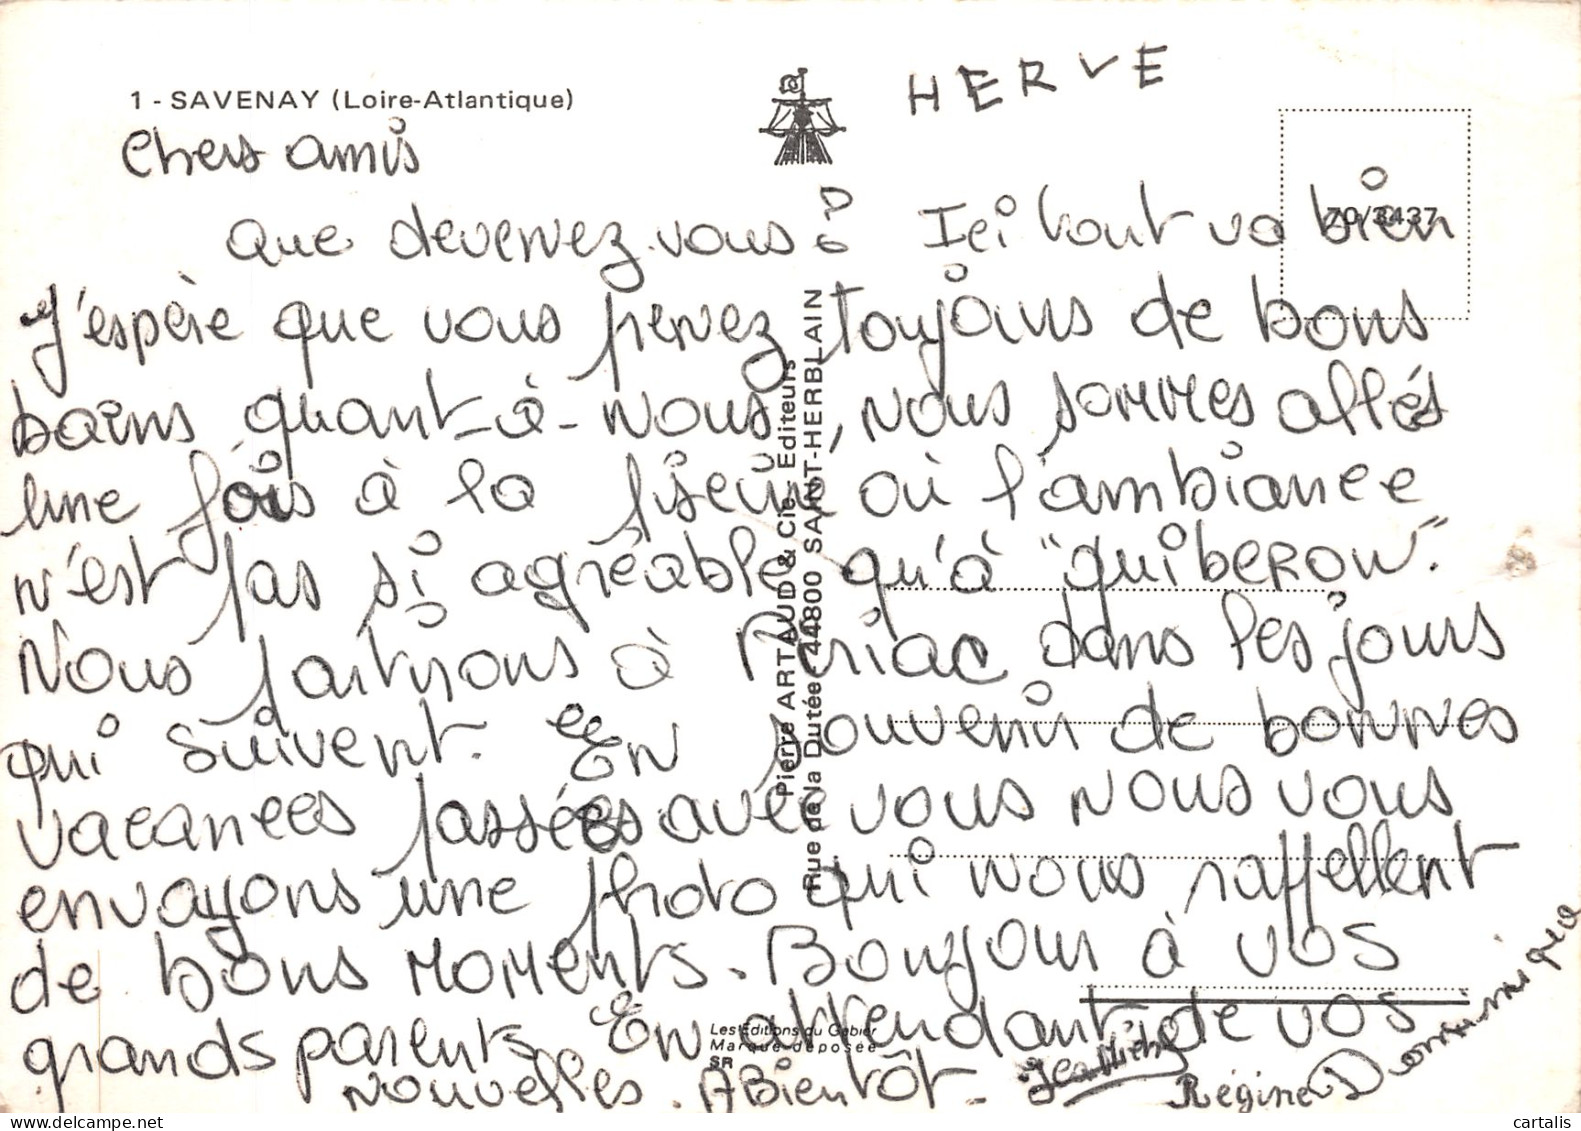 1 - SAVENAY (Loire-Atlantique)
HERVE
Chers amis
que devenez-vous? Ici tout va bien
70/3437
J'espère que vous prenez toujours de bons
bains quant-à-nous, nous sommes allés
une fois à la piscine où l'ambiance
n'est pas si agréable qu'à "quiberon".
Nous partirons à Piriac dans les jours
qui suivent. En souvenir de bonnes
vacances passées avec vous nous vous
envoyons une photo qui nous rappellent
de bons moments. Bonjour à vos
grands parents. En attendant de vos
nouvelles. A Bientôt.
Jean Michel
Régine
Dominique
Pierre ARTAUD & Cie - Editeurs
Rue de la Dutée - 44800 SAINT-HERBLAIN
Les Editions du Gabier
Marque déposée
SR
cartalis